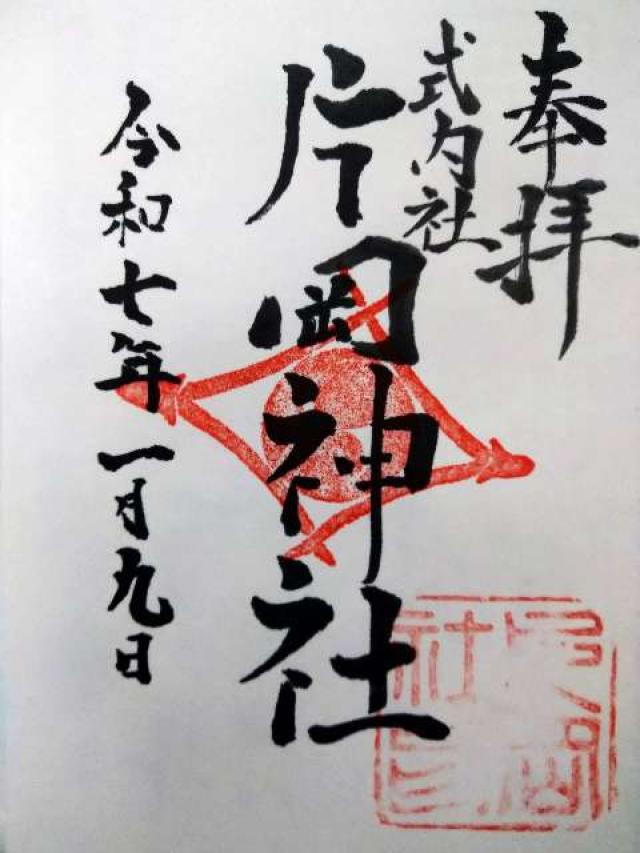 奉拝
式内社
片岡神社
令和七年一月九日